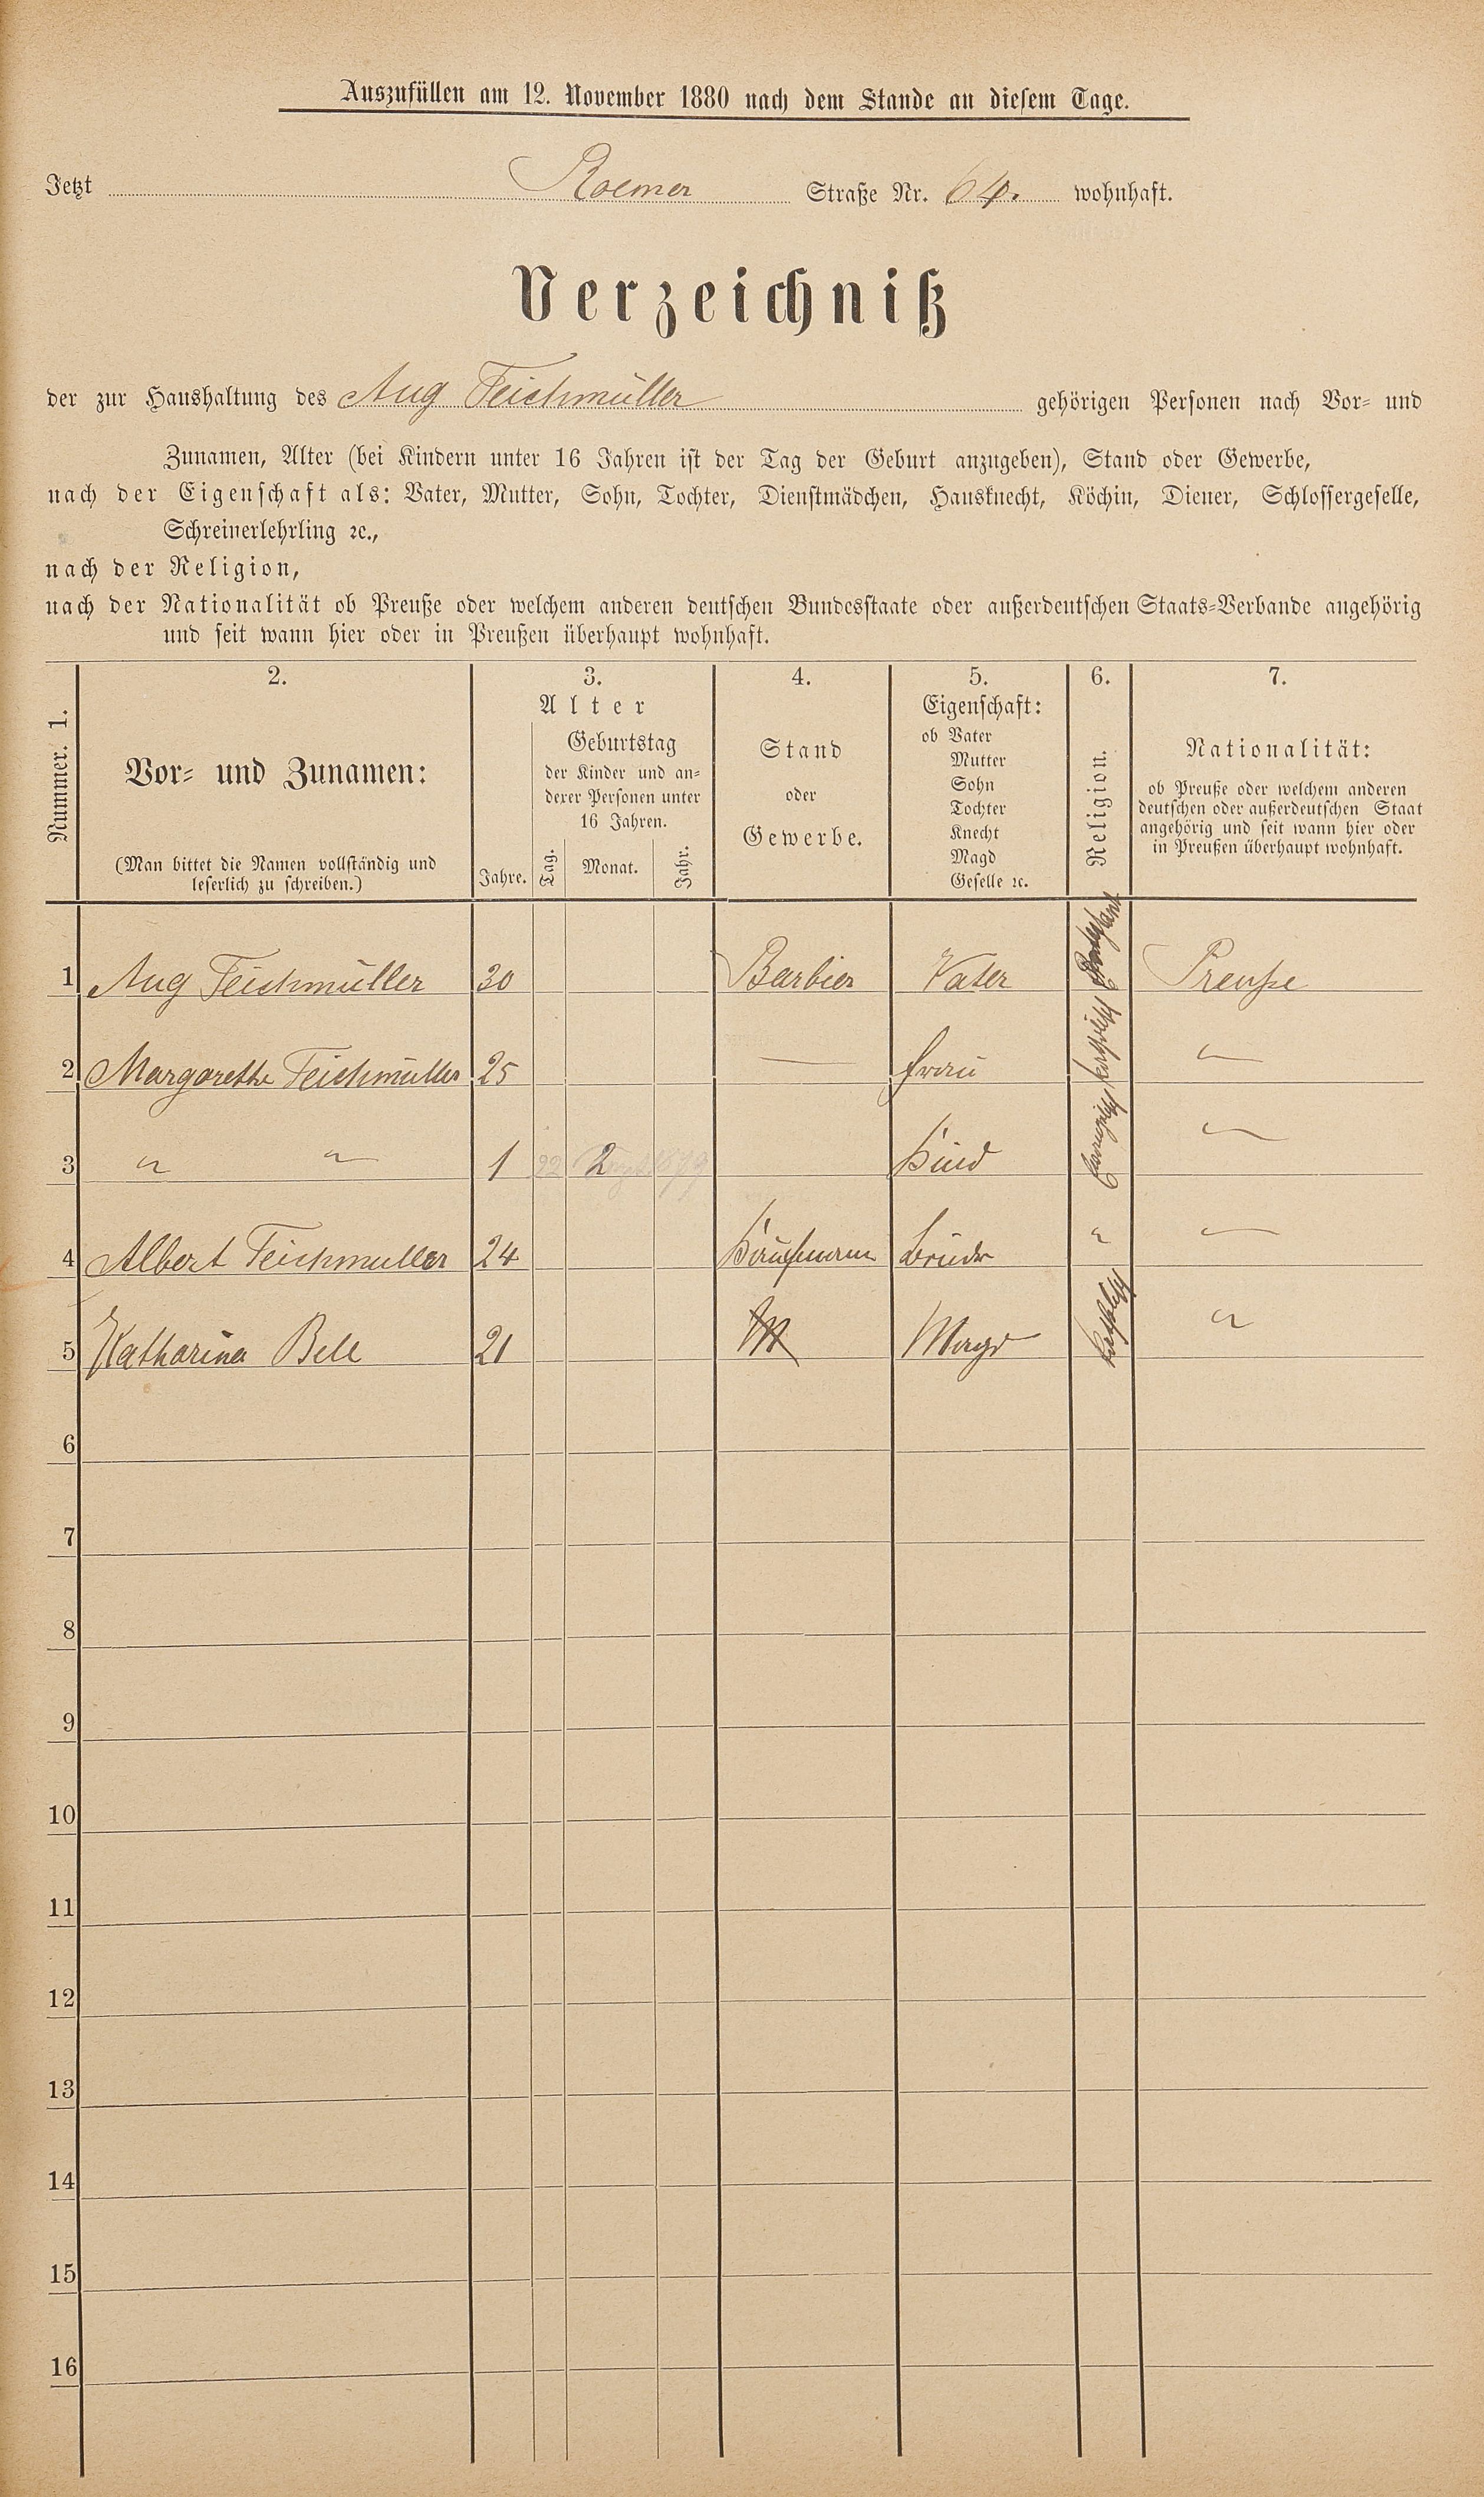 Auszufüllen am 12. November 1880 nach dem Stande an diesem Tage.
Jetzt Roemer Straße Nr. 64. wohnhaft.
Verzeichniß
der zur Haushaltung des Aug Teichmüller gehörigen Personen nach Vor- und
Zunamen, Alter (bei Kindern unter 16 Jahren ist der Tag der Geburt anzugeben), Stand oder Gewerbe,
nach der Eigenschaft als: Vater, Mutter, Sohn, Tochter, Dienstmädchen, Hausknecht, Köchin, Diener, Schlossergeselle,
Schreinerlehrling ꝛc.,
nach der Religion,
nach der Nationalität ob Preuße oder welchem anderen deutschen Bundesstaate oder außerdeutschen Staats-Verbande angehörig
und seit wann hier oder in Preußen überhaupt wohnhaft.
Nummer. 1.
2.
Vor- und Zunamen:
(Man bittet die Namen vollständig und
leserlich zu schreiben.)
3.
Alter
Jahre.
Geburtstag
der Kinder und an-
derer Personen unter
16 Jahren.
Tag.
Monat.
Jahr.
4.
Stand
oder
Gewerbe.
5.
Eigenschaft:
ob Vater
Mutter
Sohn
Tochter
Knecht
Magd
Geselle ꝛc.
6.
Religion.
7.
Nationalität:
ob Preuße oder welchem anderen
deutschen oder außerdeutschen Staat
angehörig und seit wann hier oder
in Preußen überhaupt wohnhaft.
1 Aug Teichmüller 30 Barbier Vater Preuße
2 Margarethe Teichmüller 25 — Frau Katholisch "
3 " " 1 22 2 1879 Kind Evangelisch "
4 Albert Teichmuller 24 Kaufmann Bruder " "
5 Katharina Bell 21 M Magd Katholisch "
6
7
8
9
10
11
12
13
14
15
16